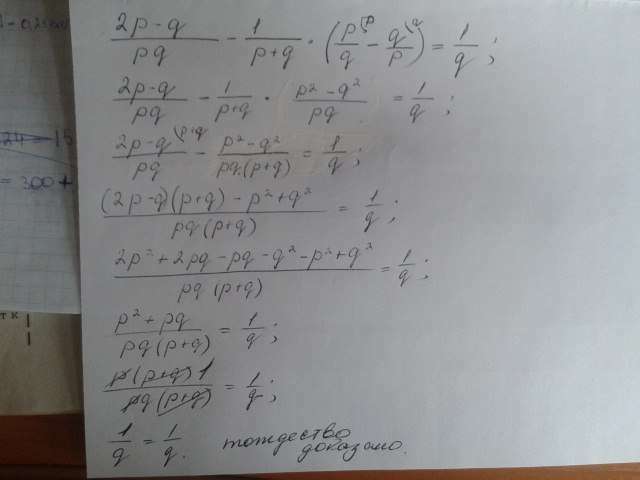 (2p-q)/(pq) - 1/(p+q) · (p/q \p - q/p \q) = 1/q ;
(2p-q)/(pq) - 1/(p+q) · (p² - q²)/(pq) = 1/q ;
(2p-q \p+q)/(pq) - (p² - q²)/(pq(p+q)) = 1/q ;
((2p-q)(p+q) - p² + q²)/(pq(p+q)) = 1/q ;
(2p² + 2pq - pq - q² - p² + q²)/(pq(p+q)) = 1/q ;
(p² + pq)/(pq(p+q)) = 1/q ;
(p(p+q) 1)/(pq(p+q)) = 1/q ;
1/q = 1/q. тождество
доказано.
24 15
= 300 +
тк